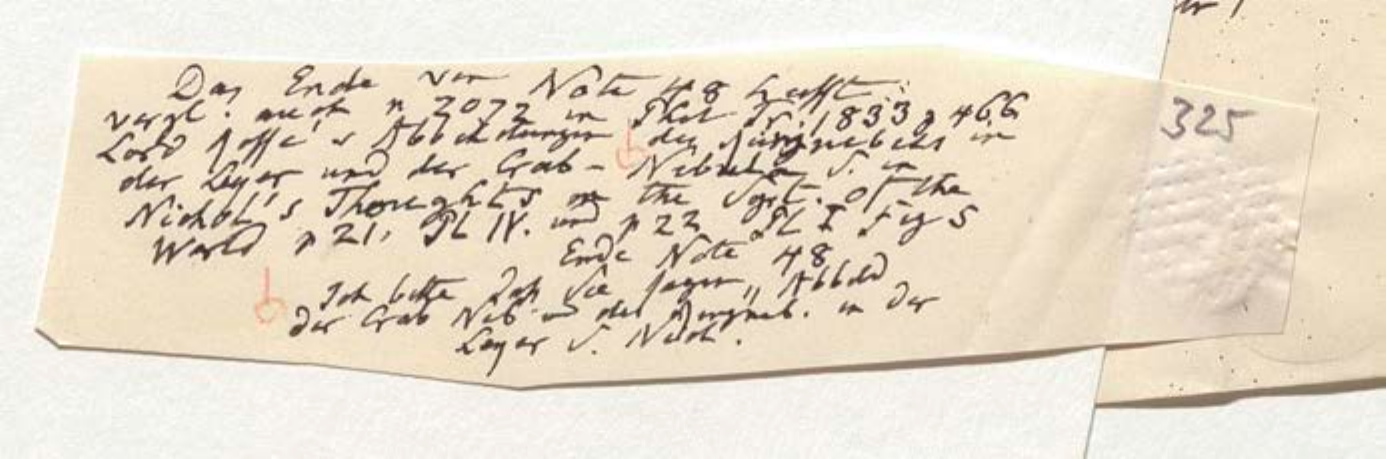 Das Ende von Note 48 heißt:
vergl. auch n 2072 in Phil. Tr. 1833 p 466
Lord Rosse's Abbildungen des Ringnebels in
der Leyer und der Crab-Nebula s. in
Nichol's Thoughts on the Syst. of the
World p 21, Pl IV. und p 22 Pl I Fig 5
Ende Note 48
Ich bitte daß Sie sagen „Abbild
der Crab Neb. und des Ringneb. in der
Leyer s. Nich.
325